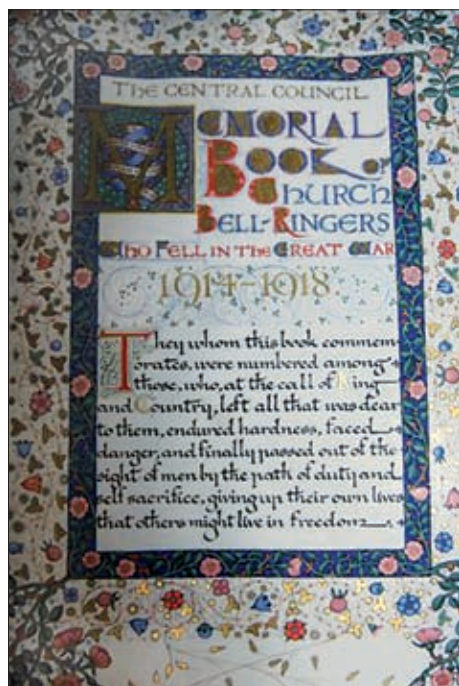 THE CENTRAL COUNCIL
MEMORIAL
BOOK OF
CHURCH
BELL-RINGERS
WHO FELL IN THE GREAT WAR
1914-1918
They whom this book commem
orates, were numbered among
those, who, at the call of King
and Country, left all that was dear
to them, endured hardness, faced
danger, and finally passed out of the
sight of men by the path of duty and
self sacrifice, giving up their own lives
that others might live in freedom